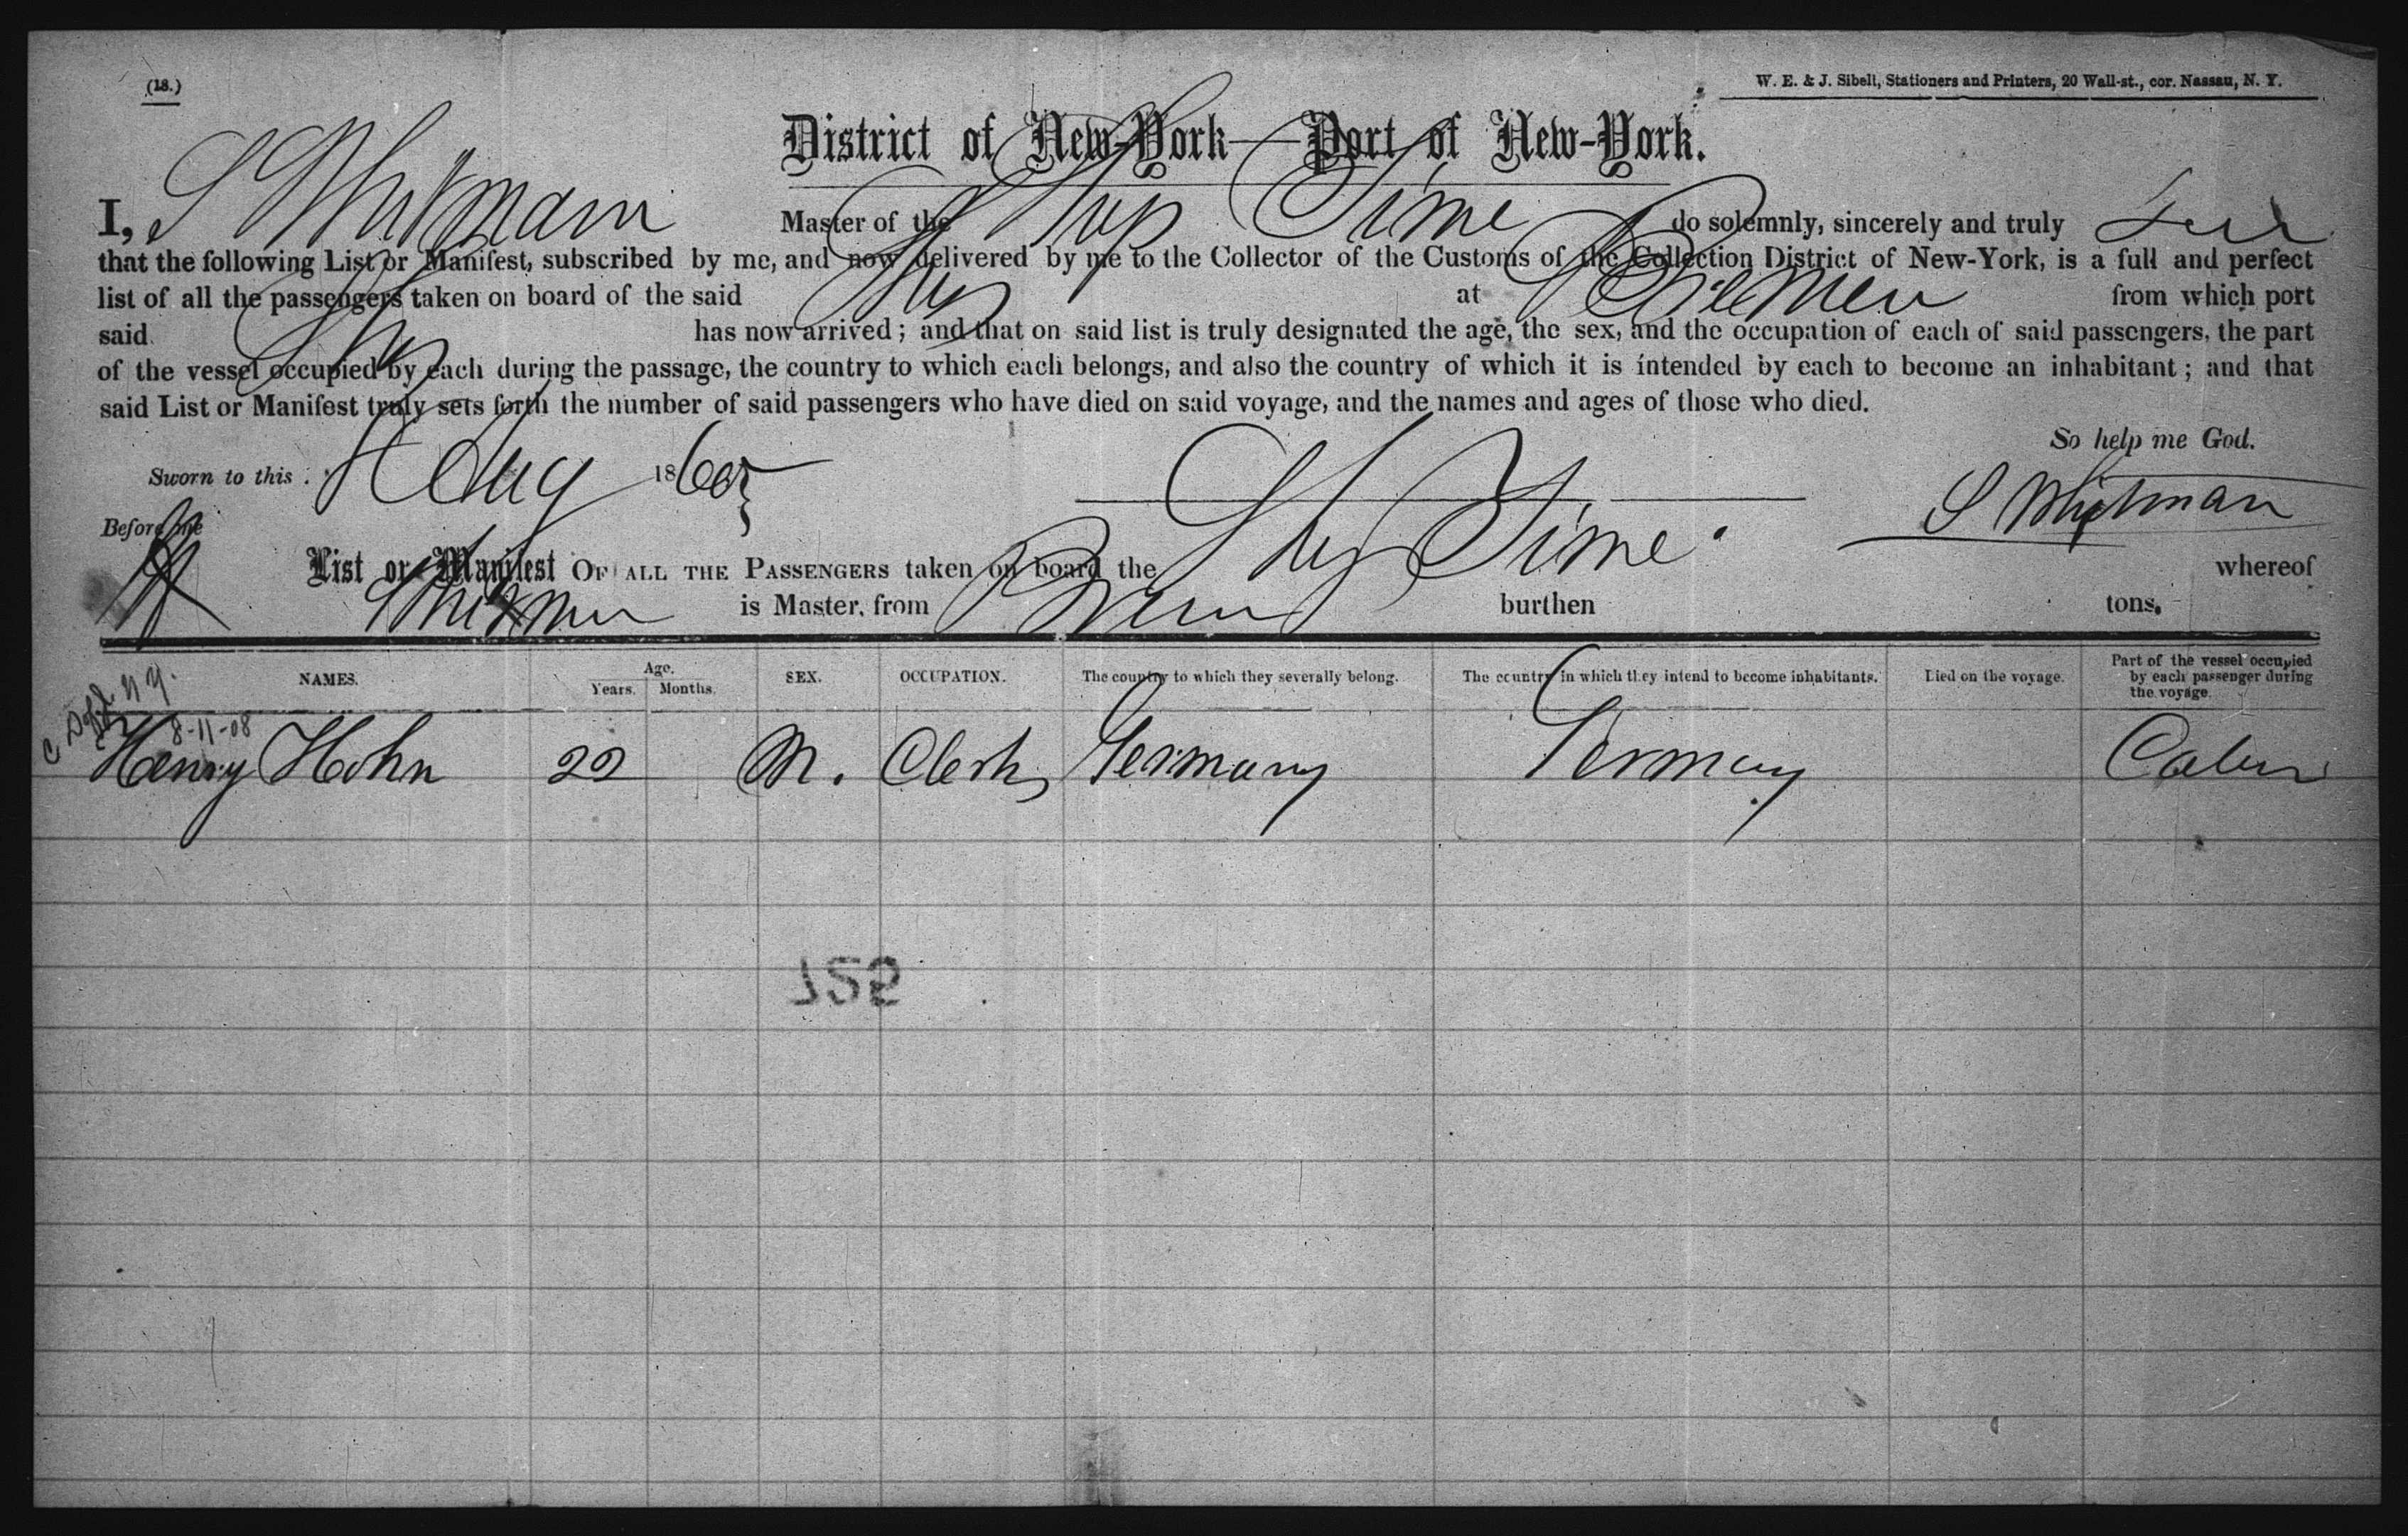 (18.)
W. E. & J. Sibell, Stationers and Printers, 20 Wall-st., cor. Nassau, N. Y.
District of New-York—Port of New-York.
I, S Whitman Master of the Ship Time do solemnly, sincerely and truly
that the following List or Manifest, subscribed by me, and now delivered by me to the Collector of the Customs of the Collection District of New-York, is a full and perfect
list of all the passengers taken on board of the said Ship at Bremen from which port
said Ship has now arrived; and that on said list is truly designated the age, the sex, and the occupation of each of said passengers, the part
of the vessel occupied by each during the passage, the country to which each belongs, and also the country of which it is intended by each to become an inhabitant; and that
said List or Manifest truly sets forth the number of said passengers who have died on said voyage, and the names and ages of those who died.
So help me God.
Sworn to this Aug 1865
S Whitman
Before me
List or Manifest OF ALL THE PASSENGERS taken on board the Ship Time whereof
Whitman is Master, from Bremen burthen tons.
NAMES. Age. Years. Months. SEX. OCCUPATION. The country to which they severally belong. The country in which they intend to become inhabitants. Died on the voyage. Part of the vessel occupied by each passenger during the voyage.
N Y.
8-11-08
Henry Hohn 22 M. Clerk Germany Germany Cabin
729